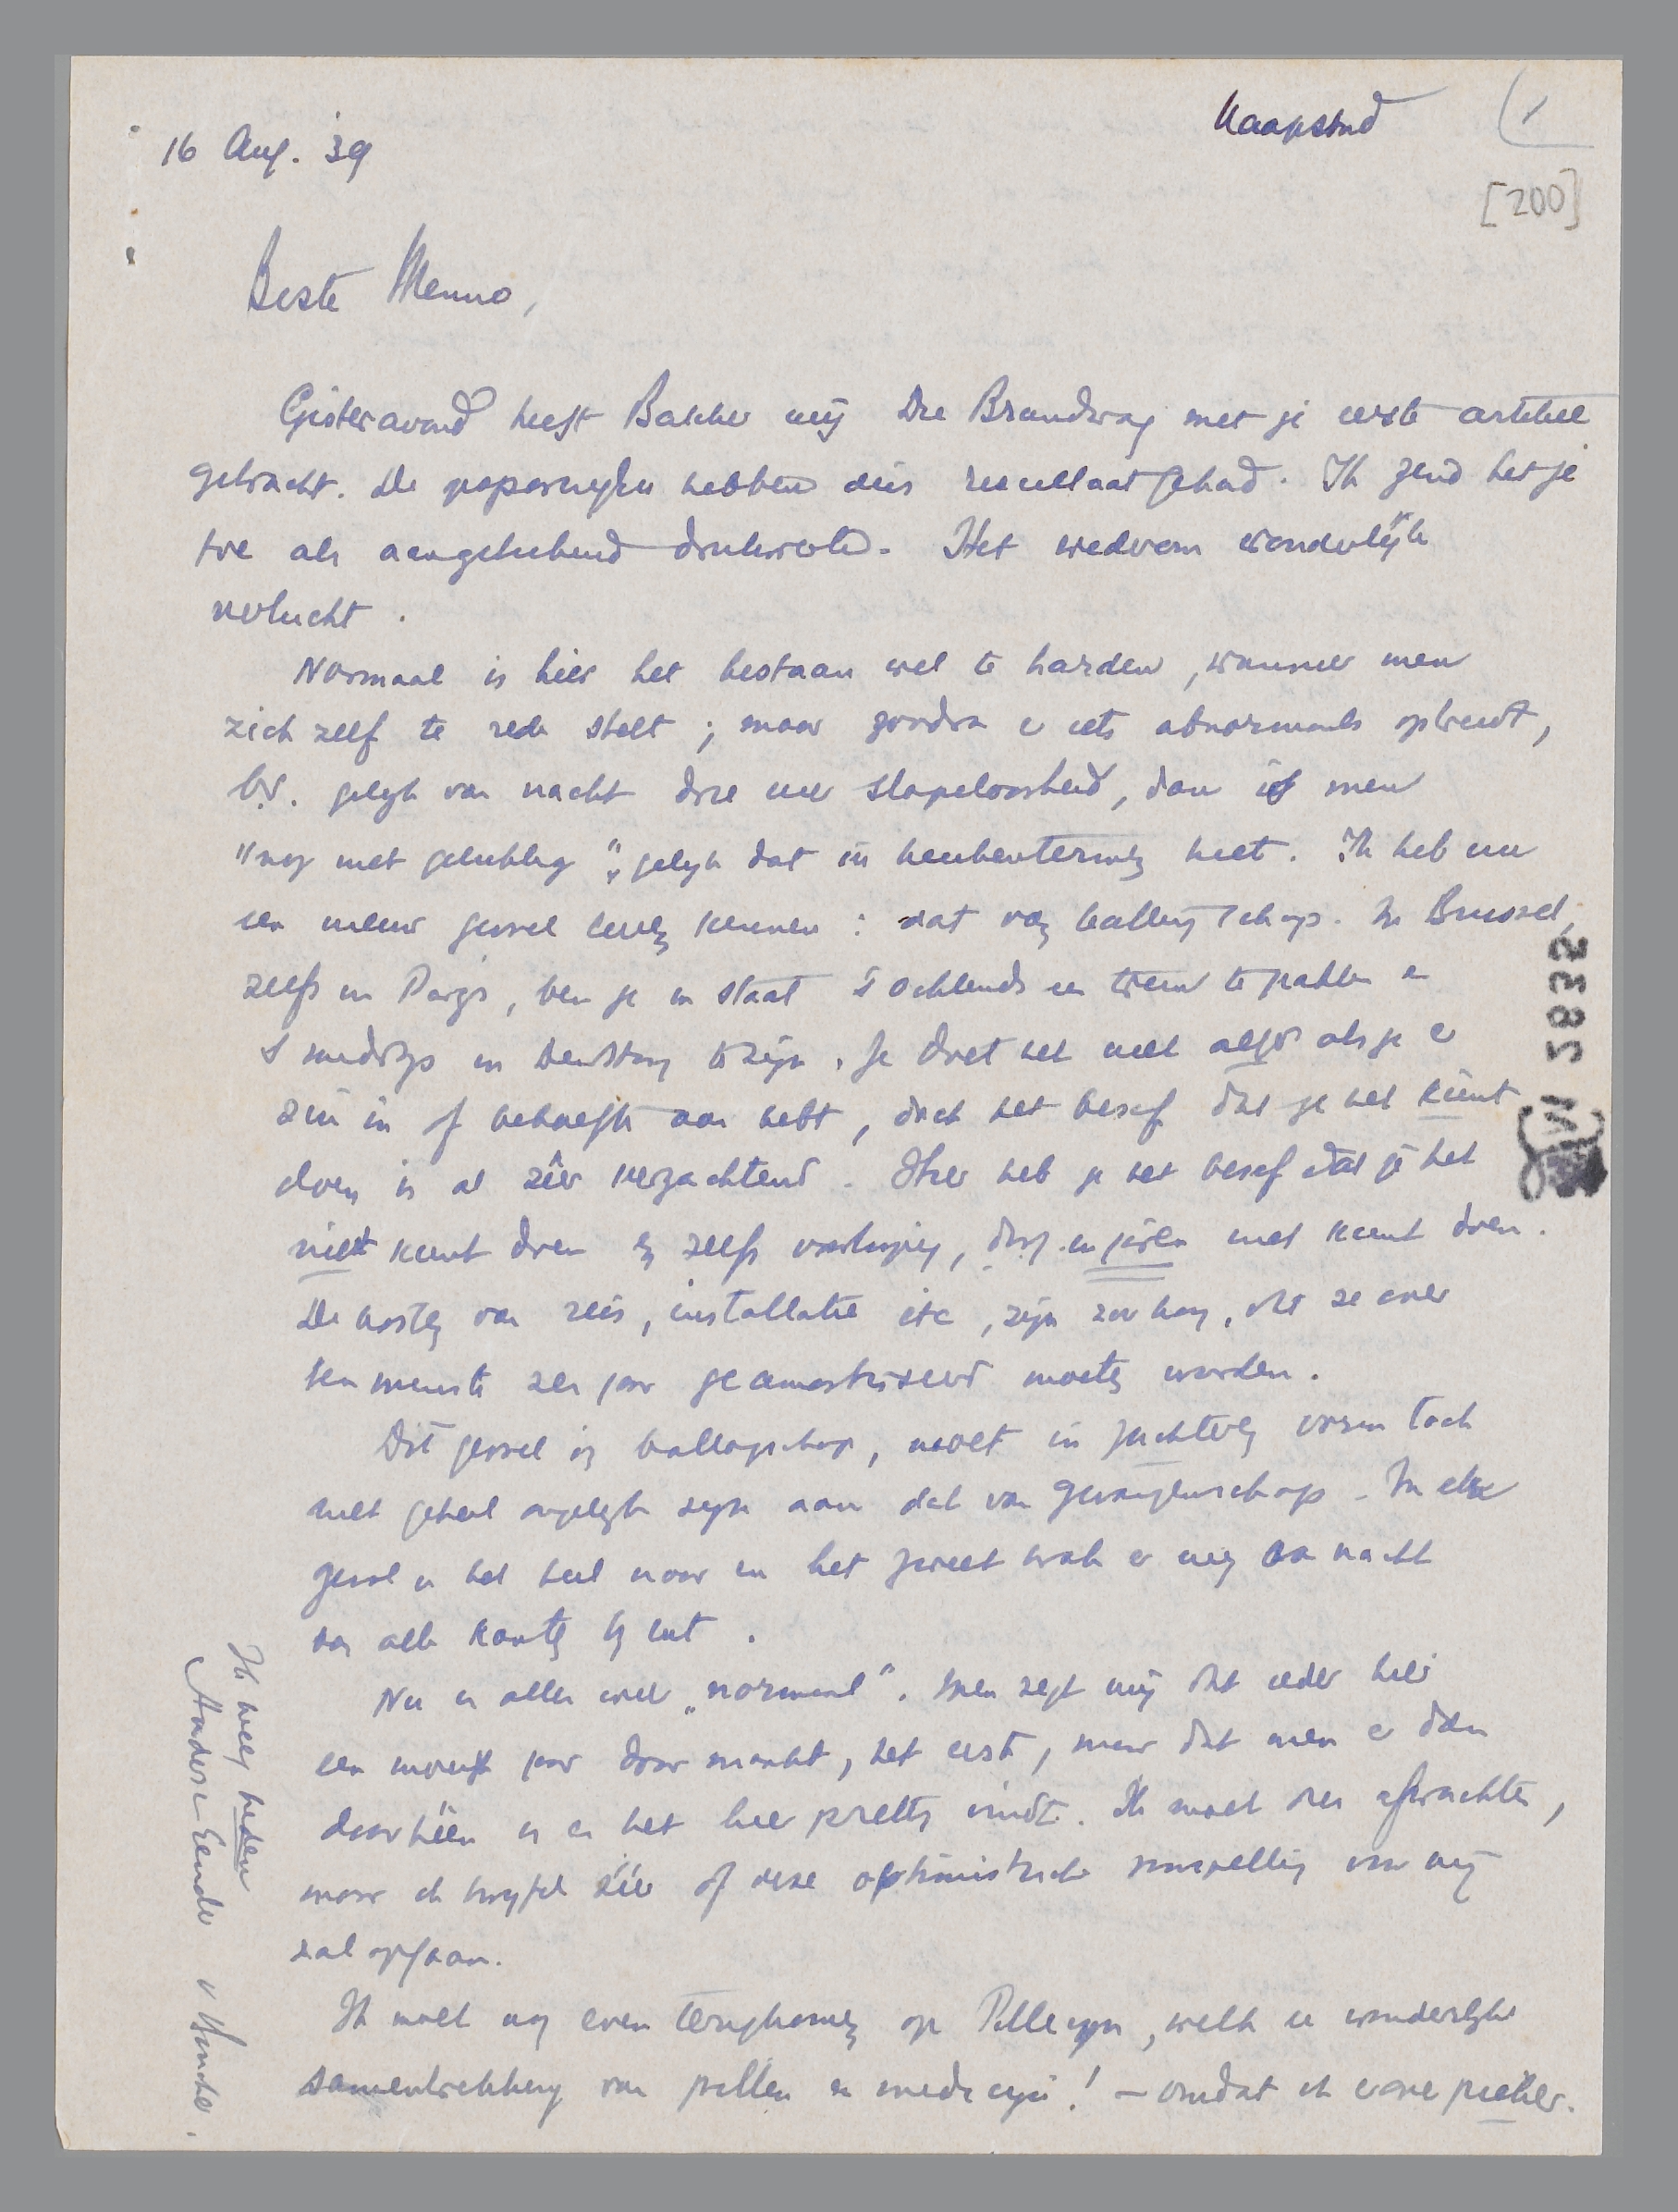 16 Aug. '39
Kaapstad
[200]
Beste Menno,
Gisteravond heeft Bakker mij Die Brandwag met je eerste artikel
gebracht. De pogingen hebben dus resultaat gehad. Ik zend het je
toe als aangeteekend drukwerk. Het wederom wonderlijk
verlucht.
Normaal is hier het bestaan wel te harden, wanneer men
zich zelf te rede stelt; maar zoodra er iets abnormaals optreedt,
bv. gelijk van nacht drie uur slapeloosheid, dan is men
"nog niet gelukkig", gelijk dat in heet. Ik heb nu
een nieuw gevoel leeren kennen: dat van ballingschap. In Brussel,
zelfs in Parijs, ben je in staat 's ochtends een trein te pakken en
's middags in te zijn. Je doet het niet altijd als je er
zin in of behoefte aan hebt, doch het besef dat je het kunt
doen is al zéér verzachtend. Hier heb je het besef dat je het
niet kunt doen en zelfs voorloopig, d.w.z. in jaren niet kunt doen.
De kosten van reis, installatie etc, zijn zoo hoog, dat ze over
ten minste zes jaar geamortiseerd moeten worden.
Dit gevoel van ballingschap, moet in vorm toch
niet geheel ongelijk zijn aan dat van gevangenschap. In elk
geval is het heel naar en het zweet brak er mij van nacht
van alle kanten bij uit.
Nu is alles weer "normaal". Men zegt mij dat ieder hier
een moeilijk jaar door maakt, het eerste, maar dat men er dan
doorhéén is en het hier prettig vindt. Ik moet dus afwachten,
maar ik twijfel zéér of deze optimistische voorspelling voor mij
zal opgaan.
Ik moet nog even terugkomen op Pillecyn, welk een wonderlijke
samentrekking van pillen en medicijn! — omdat ik
Ik kreeg heden
Andere Eeuwe v Hencke.
2832